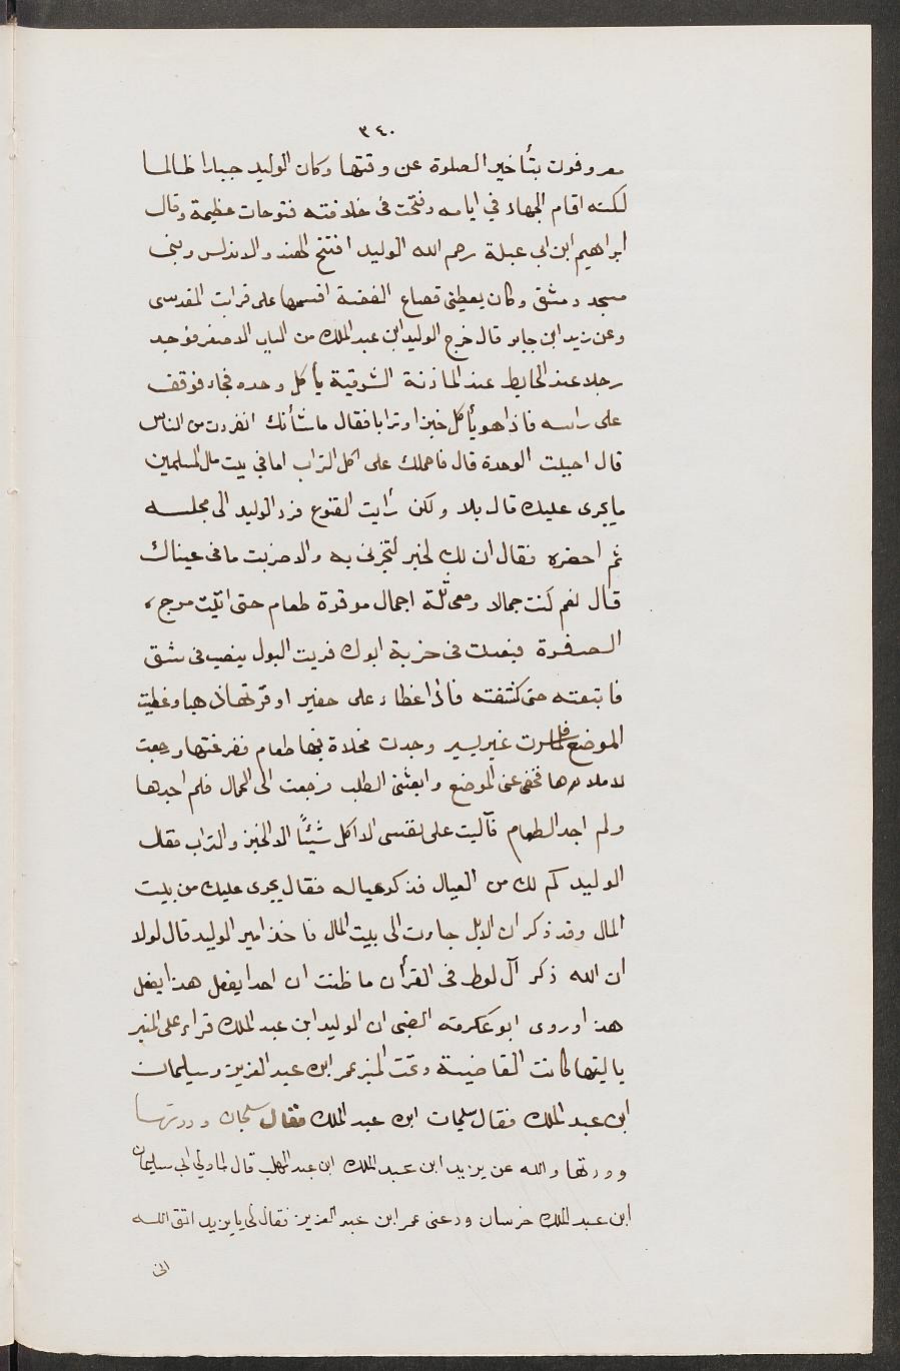 ٣٤٠
معروفون بتأخير الصلوة عن وقتها وكان الوليد جبارا ظالما
لكنه اقام الجهاد في ايامه وفتحت فى خلافته فتوحات عظيمة وقال
ابراهيم ابن ابى عبلة رحم الله الوليد افتتح الهند والاندلس وبنى
مسجد دمشق وكان يعطينى قصاع الفضة اقسمها على قرات المقدسى
وعن زيد ابن جابر قال خرج الوليد ابن عبد الملك من الباب الاصغر فوجد
رجلا عند الحايط عند الماذنة الشرقية يأكل وحده فجاء فوقف
على راسه فاذا هو يأكل خبزا وترابا فقال ما شأنك انفردت من الناس
قال احببت الوحدة قال فاحملك على اكل التراب اما في بيت مال المسلمين
ما يجرى عليك قال بلا ولكن رأيت القنوع فرد الوليد الى مجلسه
ثم احضره فقال ان لك لخبر لتخبرنى به والا ضربت ما فى عيناك
قال نعم كنت جمالا ومعى ثلثة اجمال موقرة طعام حتى اتيت مرج
الصفرة فبعدت فى خربة ابول فريت البول ينصب فى شق
فاتبعته حتى كشفته فاذا غطاء على حفير اوقرتها ذهبا وغطيت
الموضع فلما سرت غير يسير وجدت مخلاة فيها طعام ففرغتها ورجعت
لاملاءها فخفى عنى الموضع واتعبنى الطلب فرجعت الى الجمال فلم اجدها
ولم اجد الطعام فآليت على نفسى الا اكل شيئًا الا الخبز والتراب فقال
الوليد كم لك من العيال فذكر عياله فقال يجرى عليك من بيت
المال وقد ذكر ان الابل جاءت الى بيت المال فاخذ امير الوليد قال لولا
ان الله ذكر آل لوط فى القرأن ما ظنت ان احدا يفعل هذا يفعل
هذا وروى ابو عكرمه الضبى ان الوليد ابن عبد الملك قراء على المنبر
يا ليتها كانت القاضية وتحت المنبر عمر ابن عبد العزيز وسليمان
ابن عبد الملك فقال سليمان ابن عبد الملك فقال سليمان وددتها
وددتها والله عن يزيد ابن عبد الملك ابن عبد المهلب قال لما ولى الى سليمان
ابن عبد الملك خرسان ودعنى عمر ابن عبد العزيز فقال لى يا يزيد اتق الله